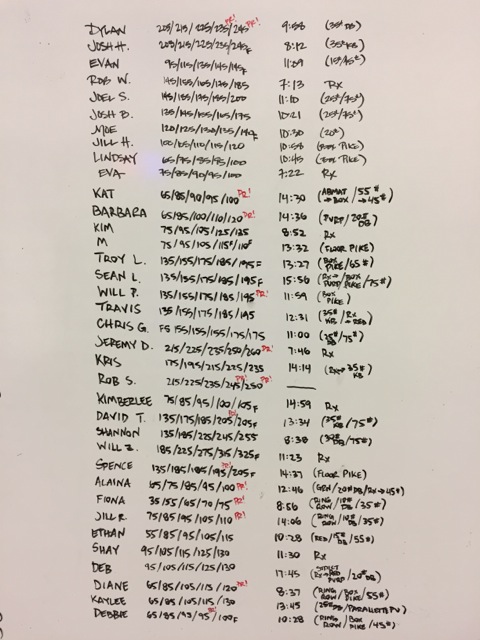 DYLAN 205/215/225/235/245 PR! 9:58 (35# DB)
JOSH H. 205/215/225/235/245F 8:12 (35# KB)
EVAN 95/115/135/145/145F 11:09
ROB W. 145/155/165/175/185 7:13 Rx
JOEL S. 145/155/175/185/200 11:10 (25#/75#)
JOSH B. 135/145/155/165/175 10:21 (25#/75#)
MOE 120/125/130/135/140F 10:30 (20#)
JILL H. 100/105/110/115/120 10:58 (BOX PIKE)
LINDSAY 65/75/85/95/100 10:45 (BOX PIKE)
EVA 75/85/90/95/100 7:22 Rx
KAT 65/85/90/95/100 PR! 14:30 (ABMAT → BOX/55# → 45#)
BARBARA 65/85/100/110/120 PR! 14:36 (PVRP/20# DB)
KIM 75/95/105/125/135 8:52 Rx
M 75/95/105/115/110F 13:32 (FLOOR PIKE)
TROY L. 135/155/175/185/195F 13:27 (BOX PIKE/65#)
SEAN L. 135/155/175/185/195F 15:56 (Rx → BOX PVRP/PIKE/75#)
WILL P. 135/155/175/185/195 PR! 11:59 (BOX PIKE)
TRAVIS 135/155/175/185/195 12:31 (35# KB/Rx → RED)
CHRIS G. FS 155/155/155/175/175 11:00 (25# DB/75#)
JEREMY D. 215/225/235/250/260 PR! 7:46 Rx
KRIS 175/195/215/225/235 14:14 (Rx → 35# KB)
ROB S. 215/225/235/245 PR!/250 PR! —
KIMBERLEE 75/85/95/100/105F 14:59 Rx
DAVID T. 135/175/185/205 PR!/205F 13:34 (35# KB/75#)
SHANNON 135/185/225/245/255 8:38 (30# DB/75#)
WILL Z. 185/225/275/315/325F 11:23 Rx
SPENCE 135/185/185/195 PR!/205F 14:37 (FLOOR PIKE)
ALAINA 65/75/85/95/100 PR! 12:46 (GRN/20# DB/Rx → 45#)
FIONA 35/55/65/70/75 PR! 8:56 (RING ROW/10# DB/35#)
JILL R. 75/85/95/105/110 PR! 14:06 (RING ROW/10# DB/35#)
ETHAN 55/85/95/105/115 10:28 (RED/15# DB/55#)
SHAY 95/105/115/125/130 11:30 Rx
DEB 95/105/115/125/130 17:45 (STRICT Rx → RED PVRP/20# DB)
DIANE 65/85/105/115/120 PR! 8:37 (RING ROW/BOX PIKE/55#)
KAYLEE 65/85/105/115/130 13:45 (25# DB/PARALLETTE PU)
DEBBIE 65/85/93/95 PR!/100F 10:28 (RING ROW/BOX PIKE/45#)